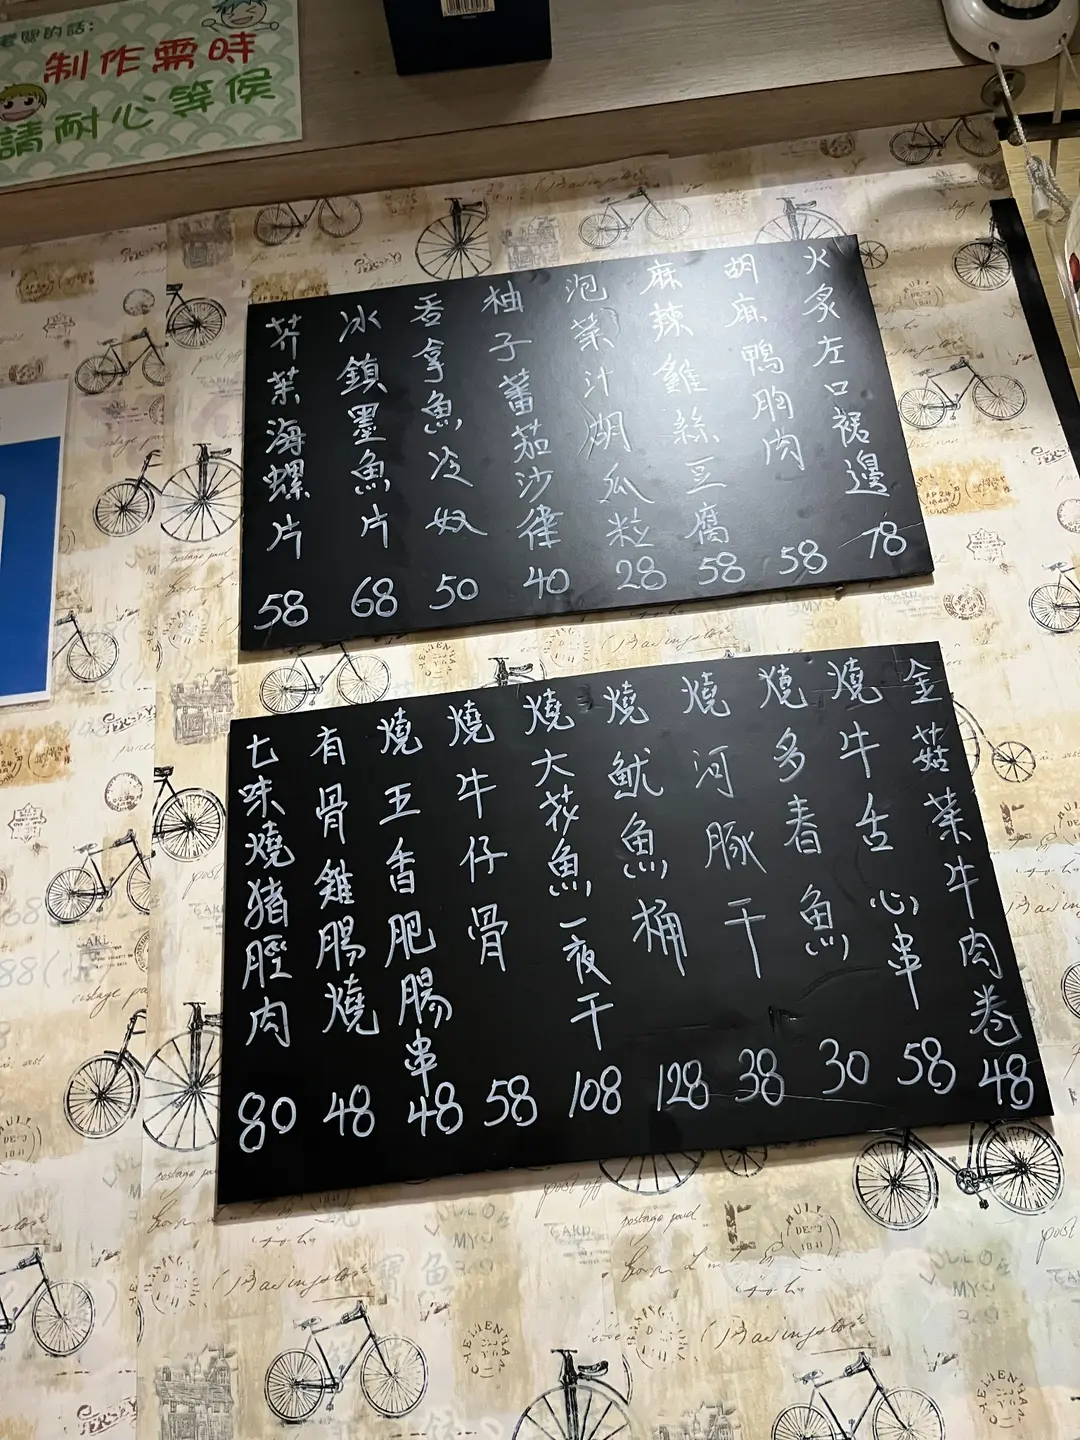 老闆的話:
制作需時
請耐心等侯
火炙左口裙邊 78
胡麻鴨胸肉 58
麻辣雞絲豆腐 58
泡菜汁胡瓜粒 28
柚子蕃茄沙律 40
吞拿魚冷奴 50
冰鎮墨魚片 68
芥菜海螺片 58
金菇菜牛肉卷 48
燒牛舌心串 58
燒多春魚 30
燒河豚干 38
燒魷魚桶 128
燒大花魚一夜干 108
燒牛仔骨 58
燒五香肥腸串 48
有骨雞腸燒 48
七味燒豬脛肉 80